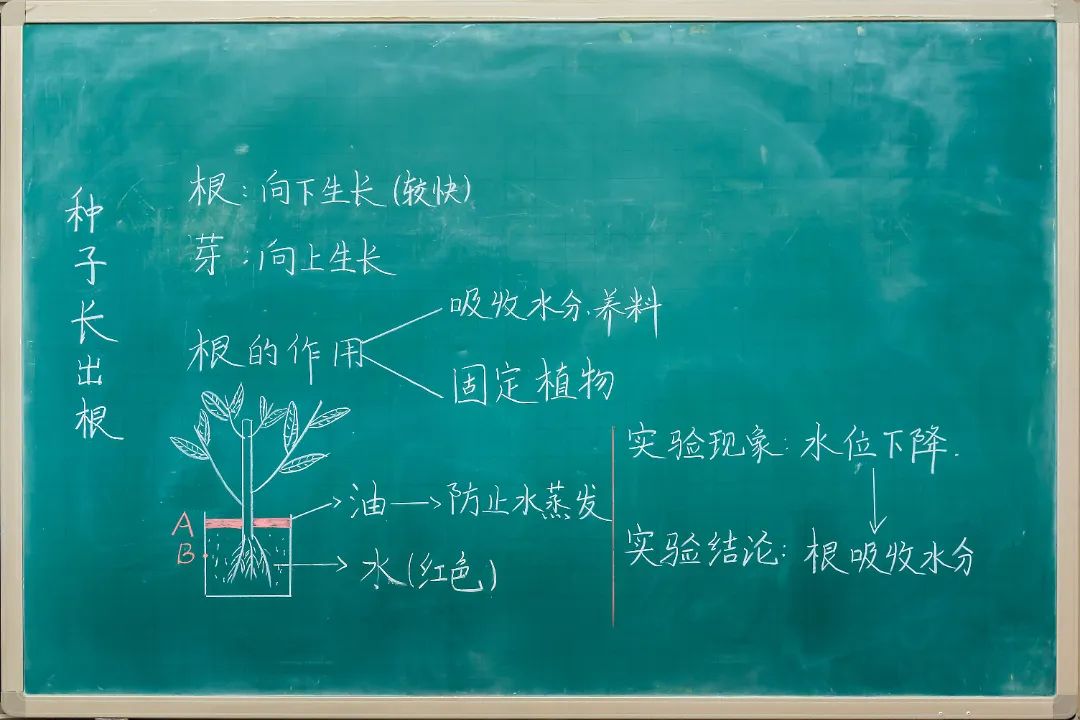 种子长出根
根：向下生长(较快)
芽：向上生长
根的作用
吸收水分、养料
固定植物
A
B
油→防止水蒸发
水(红色)
实验现象：水位下降.
实验结论：根吸收水分